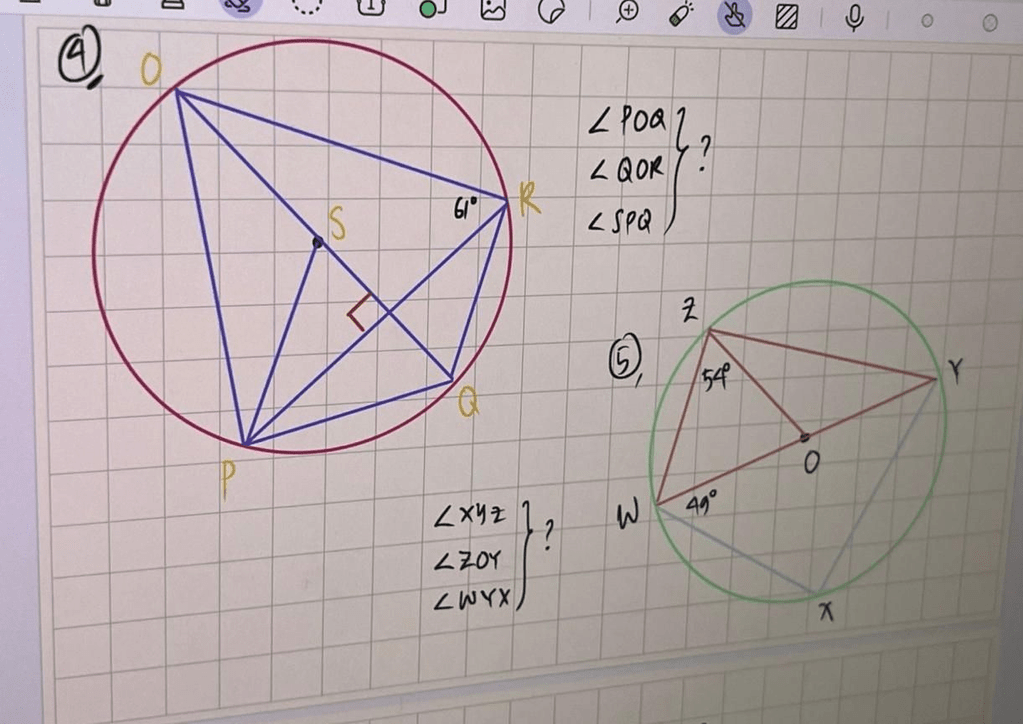 4,
O
S
R
61°
Q
P
∠POQ
∠QOR
∠SPQ
?
5,
Z
54°
Y
O
W
49°
X
∠XYZ
∠ZOY
∠WYX
?